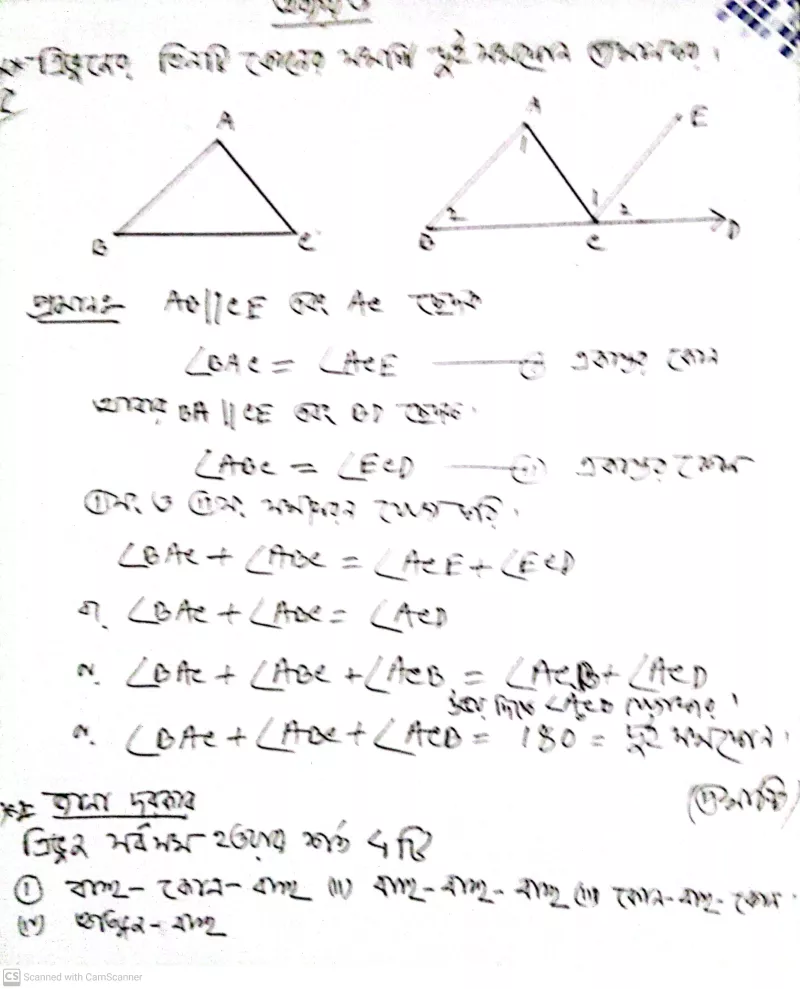 ত্রিভুজের তিনটি কোনের সমষ্টি দুই সমকোন প্রমানকর।
A
B C
A E
1
1
2 2
B C D
প্রমানঃ AB||CE এবং AC ছেদক
∠BAC = ∠ACE (i) একান্তর কোন
আবার BA || CE এবং BD ছেদক।
∠ABC = ∠ECD (ii)
(i) নং ও (ii) নং সমীকরন যোগ করি।
∠BAC + ∠ABC = ∠ACE + ∠ECD
বা, ∠BAC + ∠ABC = ∠ACD
বা, ∠BAC + ∠ABC + ∠ACB = ∠ACB + ∠ACD
উভয় দিকে
বা, ∠BAC + ∠ABC + ∠ACB = 180 = দুই সমকোন।
(প্রমানিত)
** জানা দরকার
ত্রিভুজ সর্বসম হওয়ার শর্ত ৪টি
(i) বাহু- কোন- বাহু (ii) বাহু- বাহু- বাহু (iii) কোন- বাহু- কোন
(iv) অতিভুজ- বাহু
CS Scanned with CamScanner